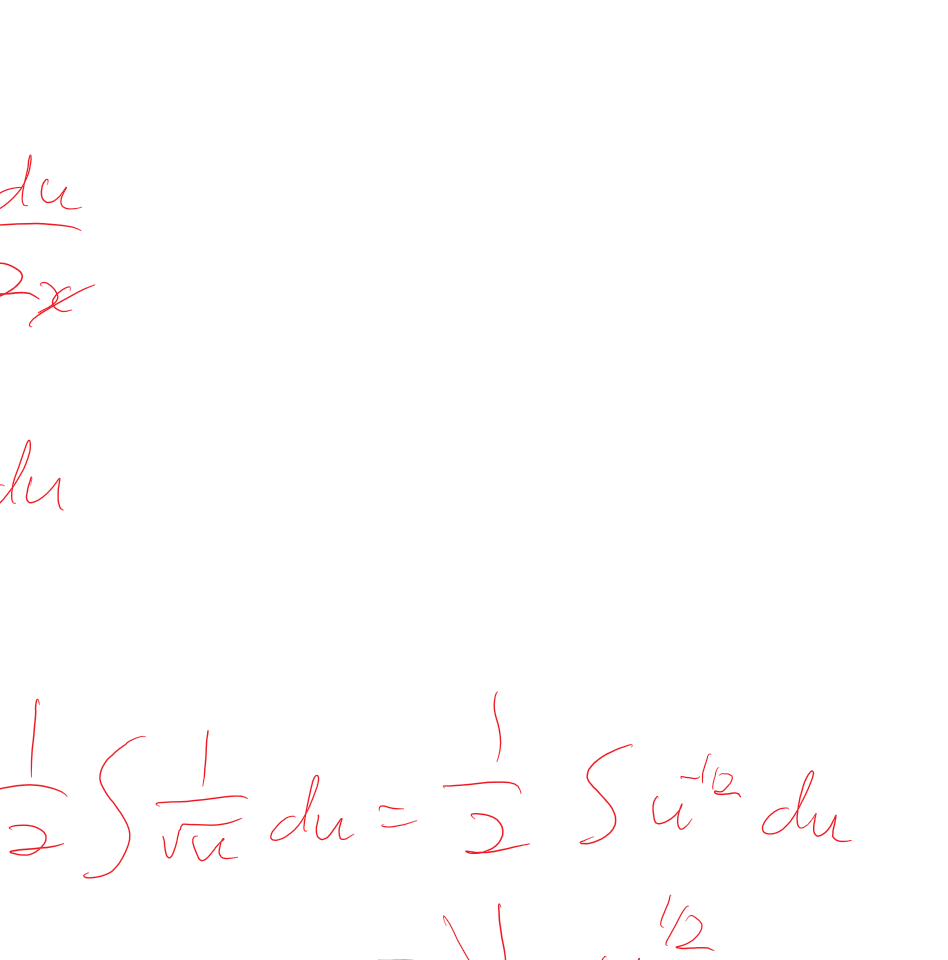 du
2x
du
1/2 ∫ 1/√u du = 1/2 ∫ u^-1/2 du
1/2